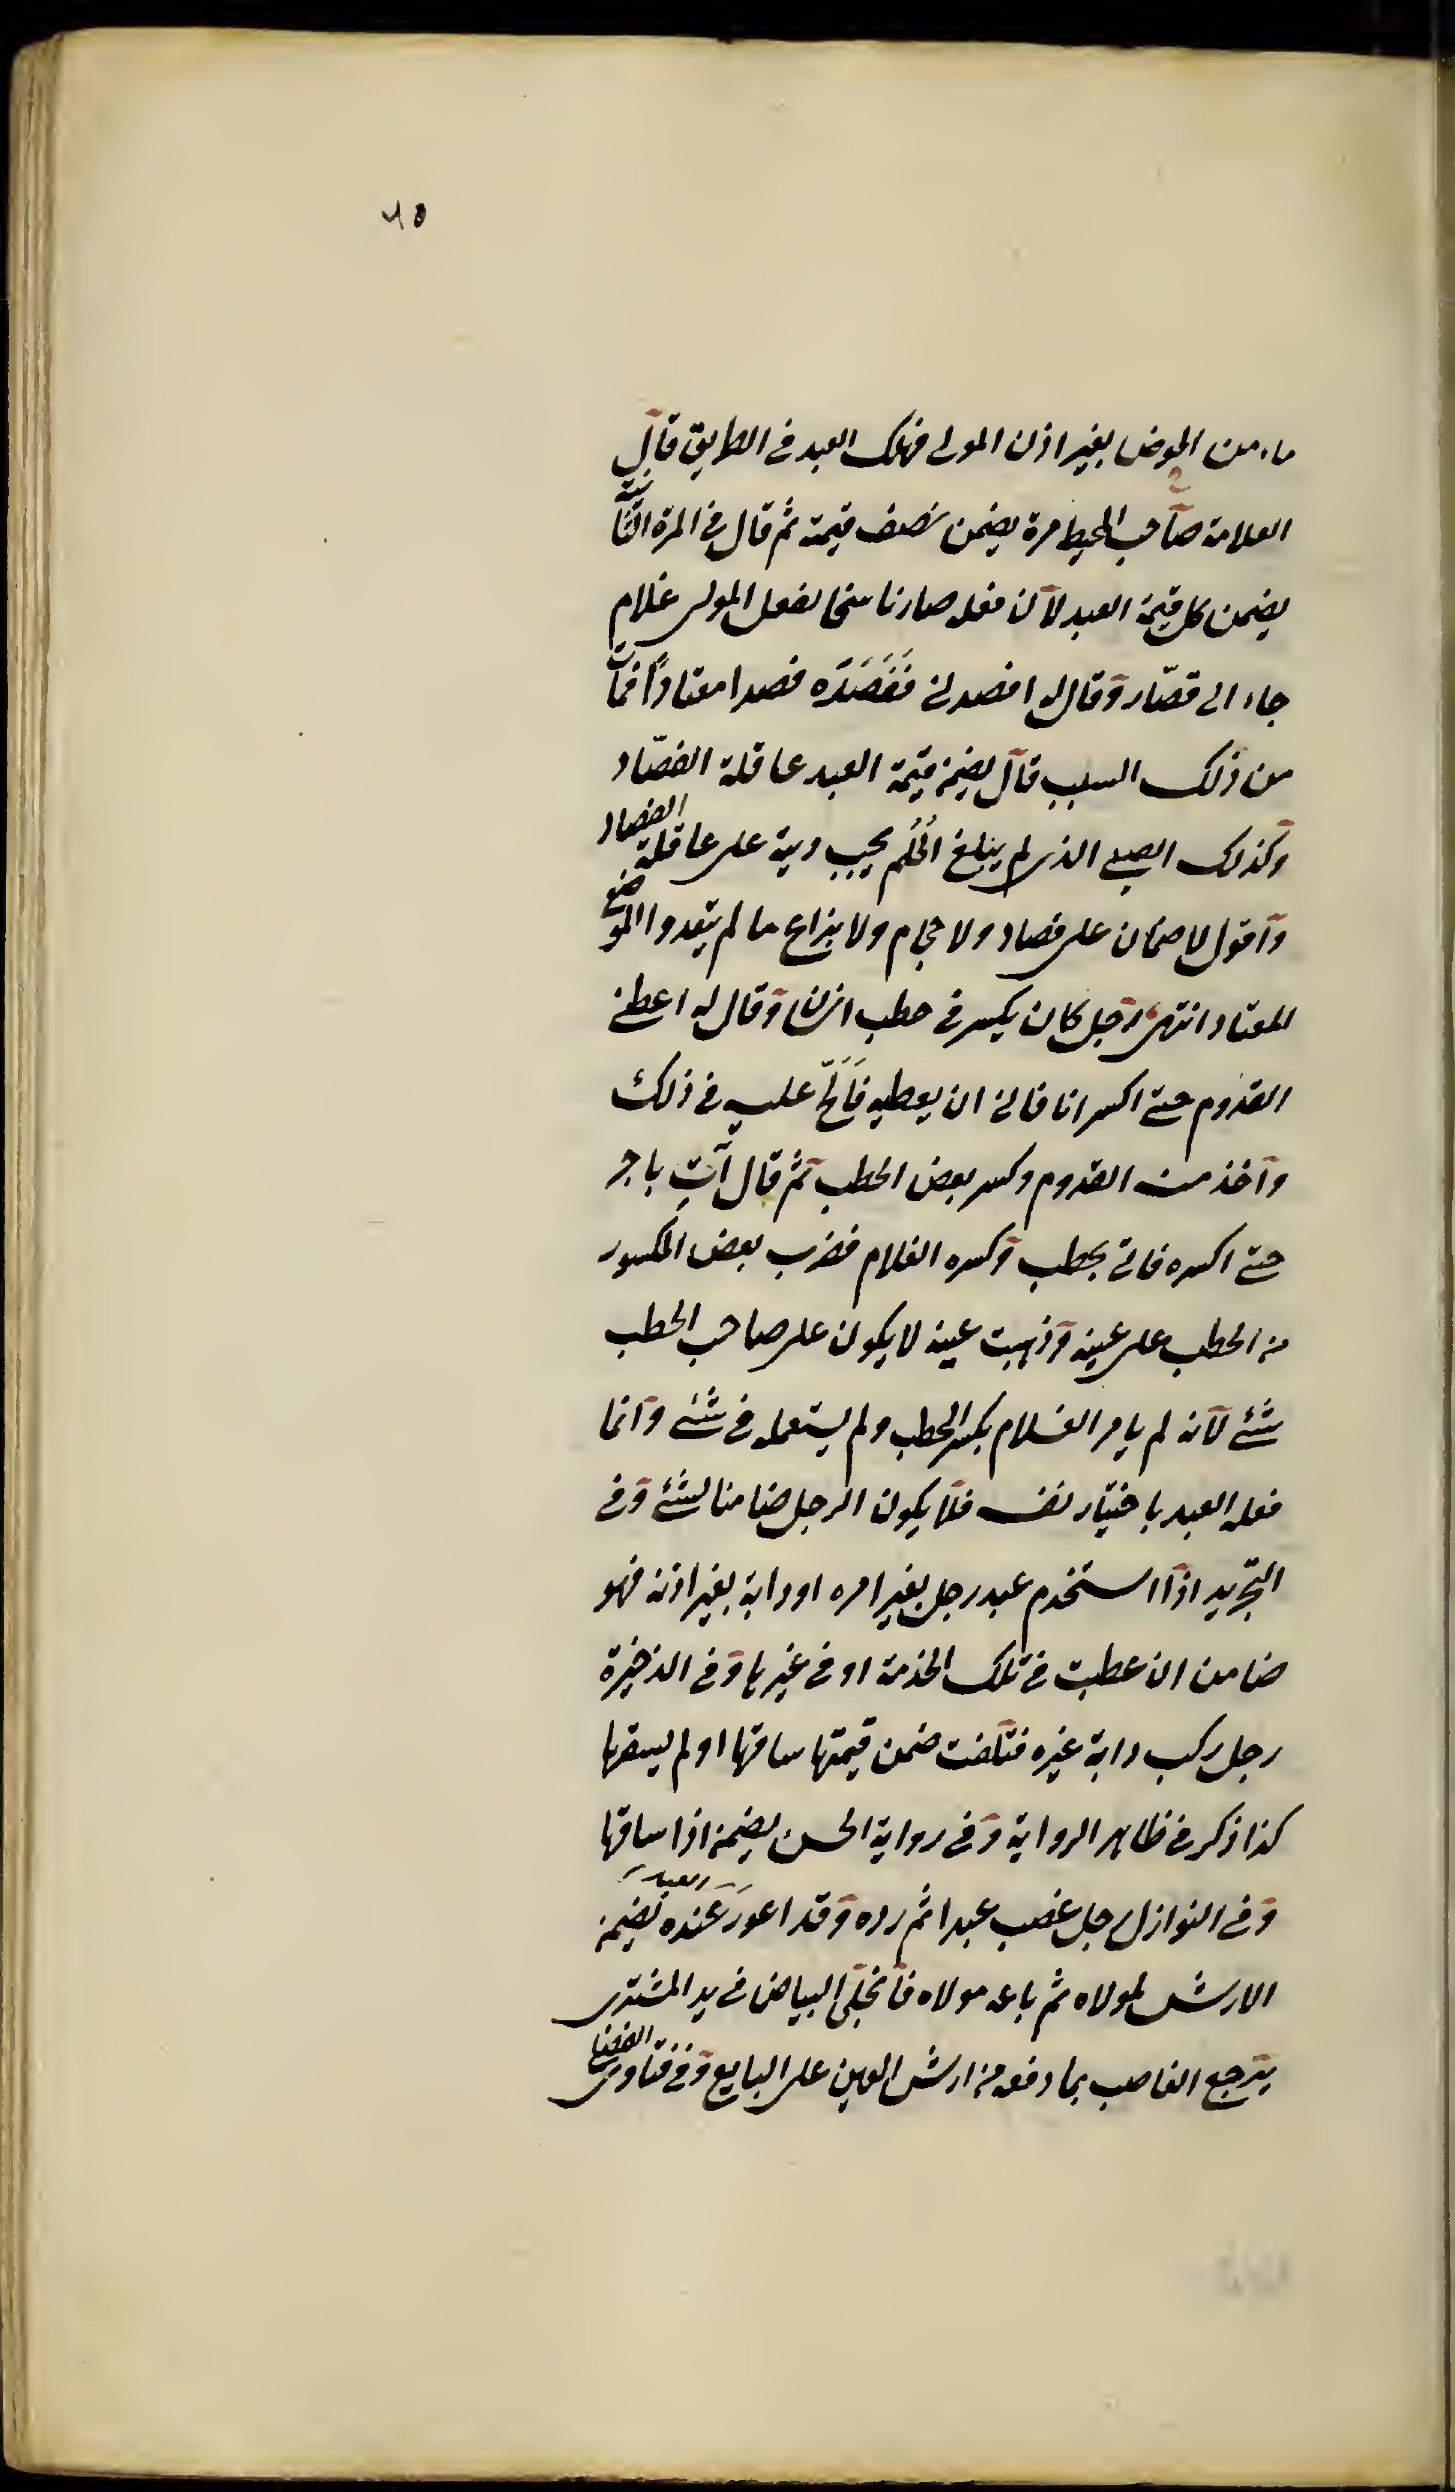 ٦٥
ماء من الحوض بغير اذن المولى فهلك العبد فى الطريق قال
العلامة صاحب المحيط مرة يضمن نصف قيمته ثم قال فى المرة الثانية
يضمن كل قيمة العبد لان فعله صار ناسخا لفعل المولى غلام
جاء الى فصّاد وقال له افصدنى فَفَصَدَه فصدا معتادًا فمات
من ذلك السبب قال يضمن قيمة العبد عاقلة الفصّاد
وكذلك الصبى الذى لم يبلغ الحُلُم يجب دية على عاقلة الفصاد
واقول لا ضمان على فصاد ولا حجام ولا بزاع ما لم يتعدوا الموضع
المعتاد انتهى رجل كان يكسر فى حطب انسان وقال له اعطنى
القدوم حتى اكسر انا فابى ان يعطيه فَاَلَحّ عليه فى ذلك
واخذ منه القدوم وكسر بعض الحطب ثم قال آتِ باخر
حتى اكسره فاتى بحطب وكسره الغلام فضرب بعض المكسور
من الحطب على عينه وذهبت عينه لا يكون على صاحب الحطب
شئ لانه لم يامر الغلام بكسر الحطب ولم يستعمله فى شئ وانما
فعله العبد باختيار نفسه فلا يكون الرجل ضامنا لشئ وفى
التجريد اذا استخدم عبد رجل بغير امره او دابة بغير اذنه فهو
ضامن ان عطبت فى تلك الخدمة او فى غيرها وفى الذخيرة
رجل ركب دابة غيره فتلفت ضمن قيمتها ساقها او لم يسقها
كذا ذكر فى ظاهر الرواية وفى رواية الحسن يضمن اذا ساقها
وفى النوازل رجل غصب عبدا ثم رده وقد اعور العبد عنده يضمن
الارش لمولاه ثم باعه مولاه فانجلى البياض فى يد المشترى
يرجع الغاصب بما دفع من ارش العين على البايع وفى فتاوى الفضلى